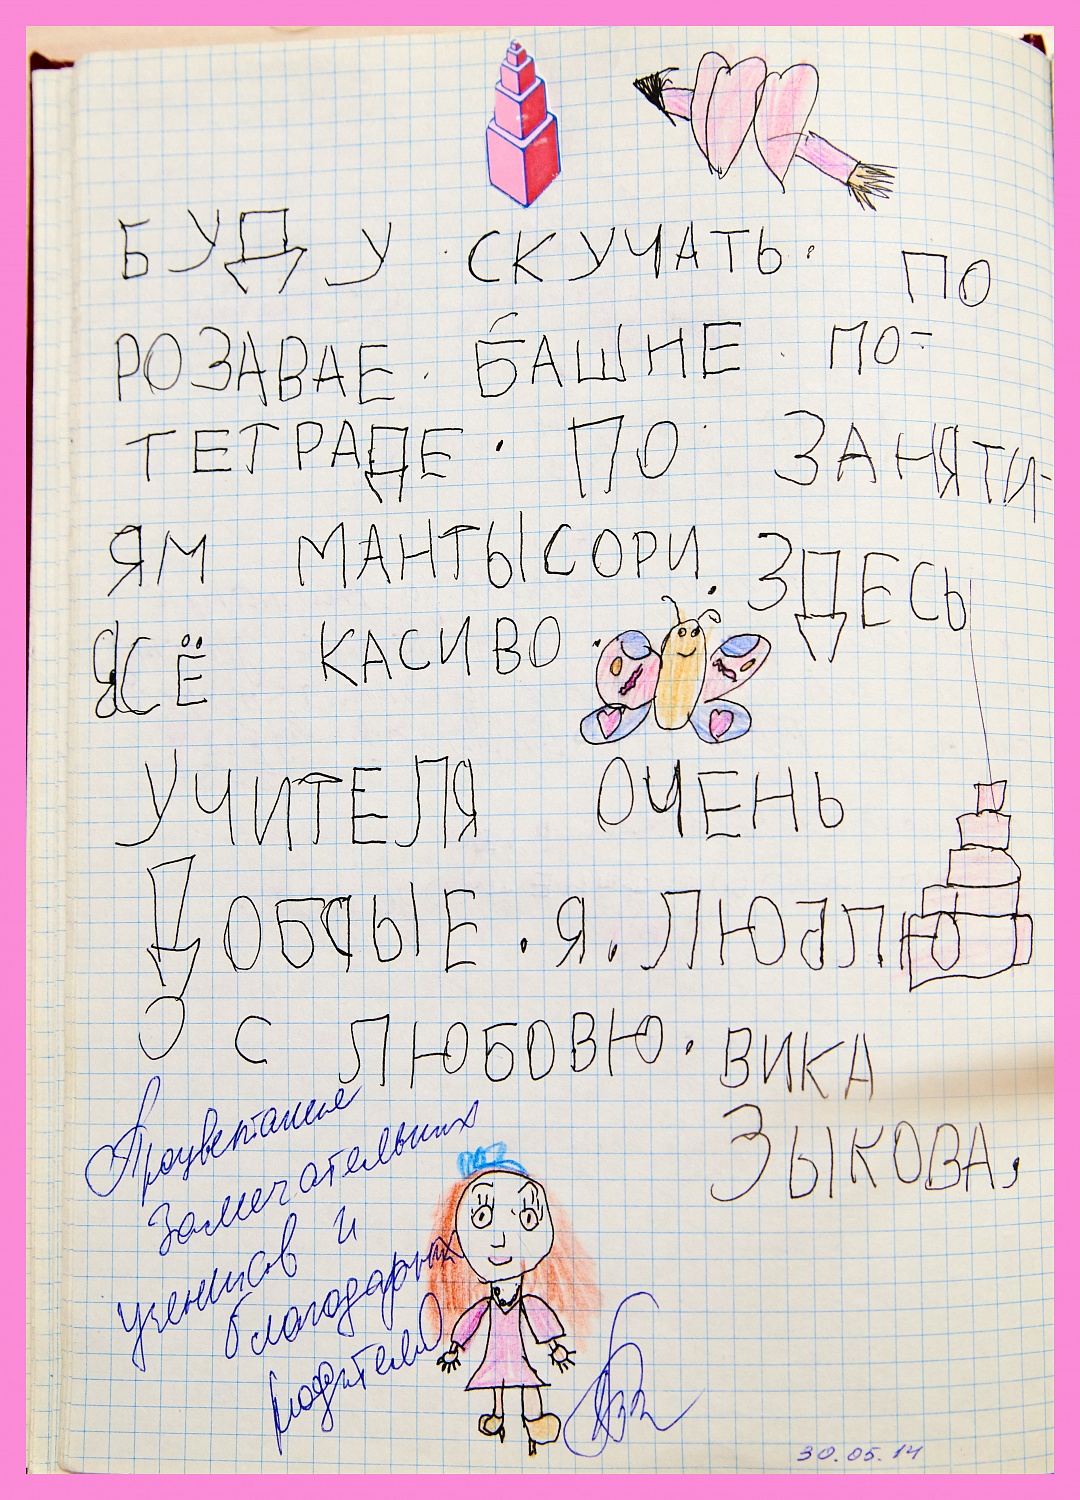 БУДУ СКУЧАТЬ. ПО
РОЗАВАЕ. БАШНЕ. ПО-
ТЕТРАДЕ. ПО ЗАНЯТИ-
ЯМ МАНТЫСОРИ. ЗДЕСЬ
ВСЁ КАСИВО.
УЧИТЕЛЯ ОЧЕНЬ
ДОБРЫЕ. Я. ЛЮБЛЮ
С ЛЮБОВЮ. ВИКА
ЗЫКОВА.
Процветания
Замечательных
учеников и
благодарных
родителей
30.05.14